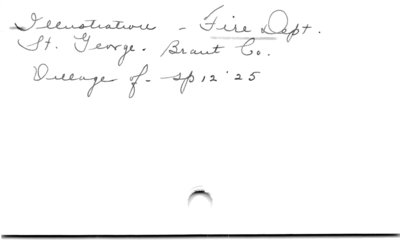 Illustration - Fire Dept.
St. George. Brant Co.
Village of - Sp 12 '25